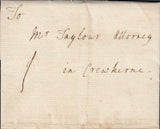 To
Mr Taylour Attorney
in Crewkerne